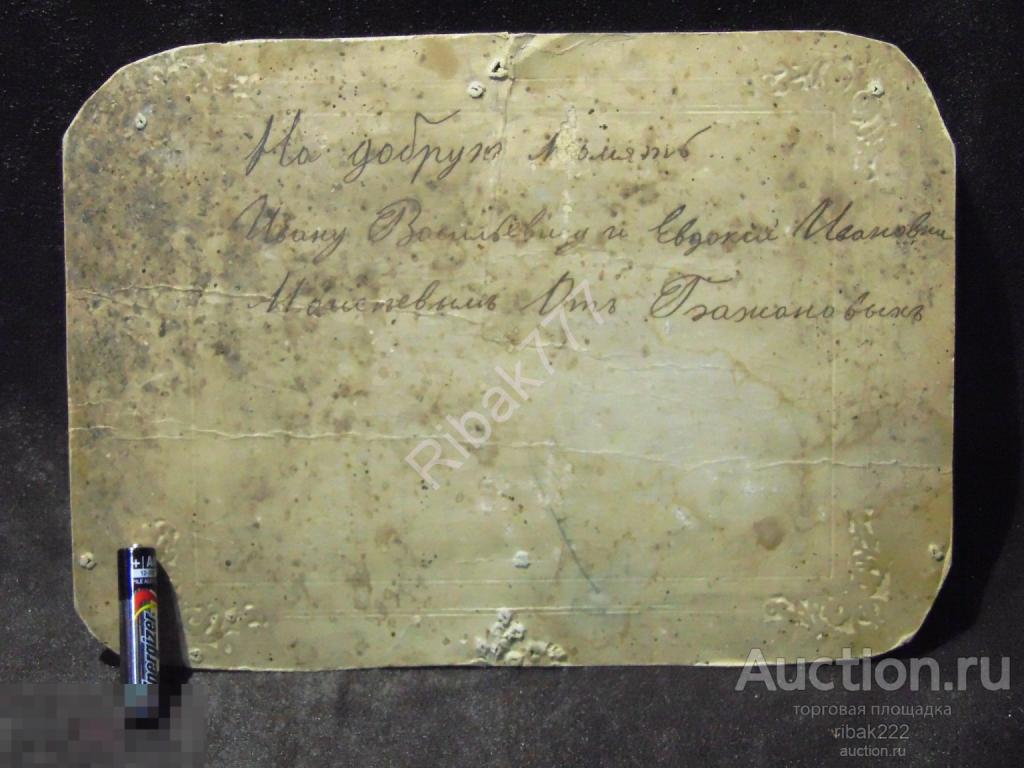 На добрую память
Ивану Васильевичу и Евдокiи Ивановни
Отъ Бажановыхъ
Ribak777
Energizer
Auction.ru
торговая площадка
ribak222
auction.ru